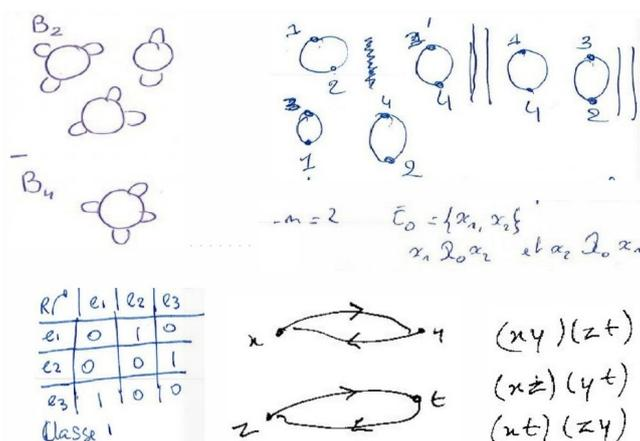 B2
1 2 3 4 1 4 3 2
3 1 4 2
B4
n=2 E0={x1, x2}
x1 R0 x2 et x2 R0 x1
e1 e2 e3
e1 0 1 0
e2 0 0 1
e3 1 0 0
Classe 1
x y
z t
(xy)(zt)
(xz)(yt)
(xt)(zy)